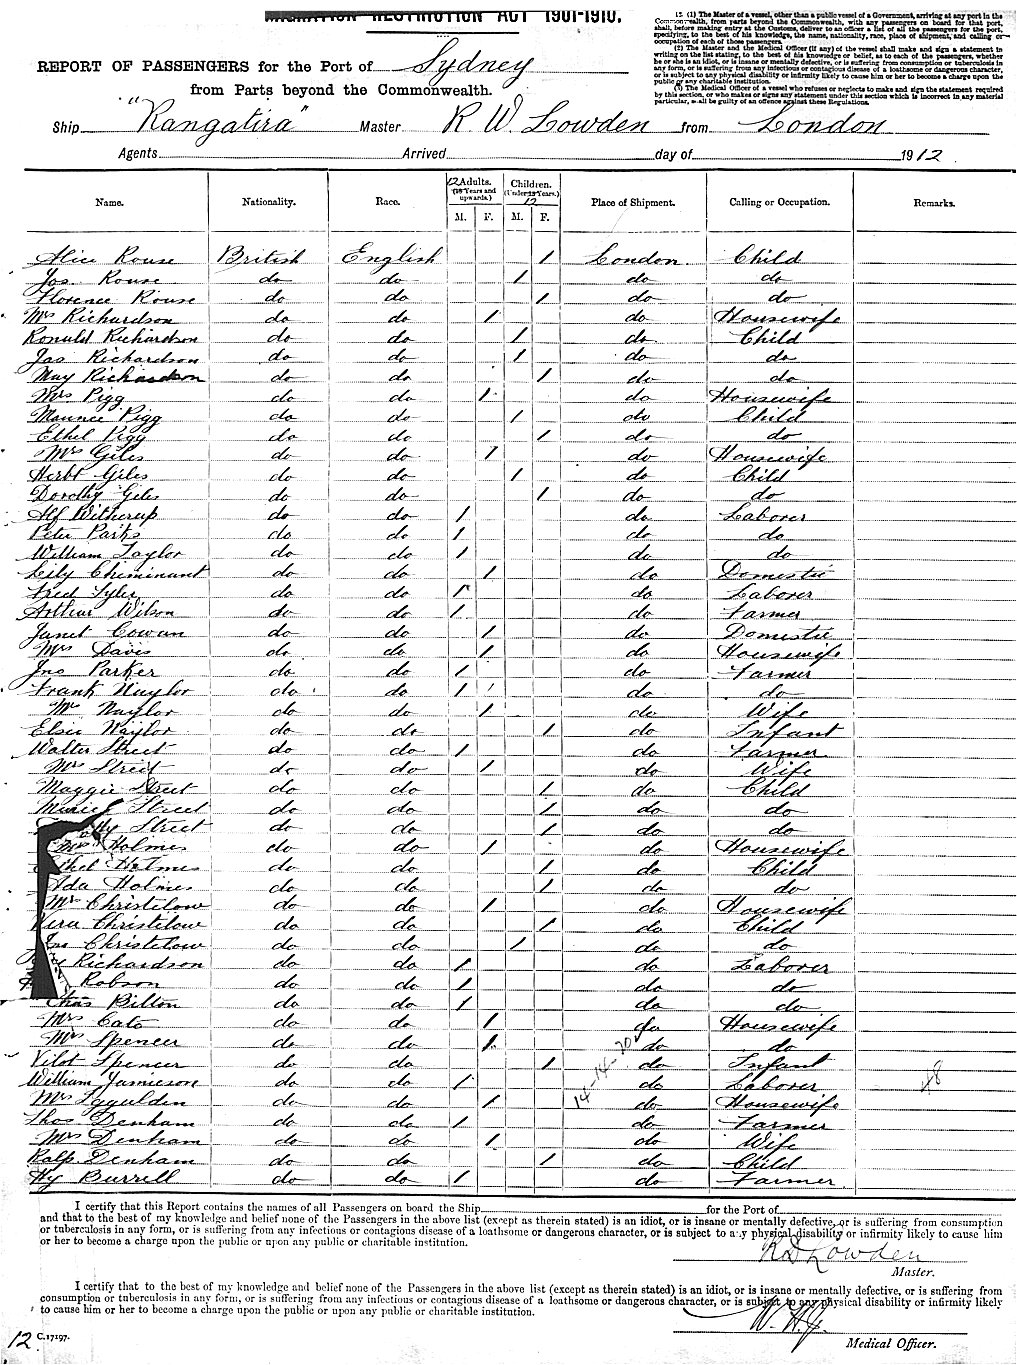 IMMIGRATION RESTRICTION ACT 1901-1910.
REPORT OF PASSENGERS for the Port of Sydney
from Parts beyond the Commonwealth.
15. (1) The Master of a vessel, other than a public vessel of a Government, arriving at any port in the
Commonwealth, from parts beyond the Commonwealth, with any passengers on board for that port,
shall, before making entry at the Customs, deliver to an officer a list of all the passengers for the port,
specifying, to the best of his knowledge, the name, nationality, race, place of shipment, and calling or
occupation of each of those passengers.
(2) The Master and the Medical Officer (if any) of the vessel shall make and sign a statement in
writing on the list stating, to the best of his knowledge or belief, as to each of the passengers, whether
he or she is an idiot, or is insane or mentally defective, or is suffering from consumption or tuberculosis in
any form, or is suffering from any infectious or contagious disease of a loathsome or dangerous character,
or is subject to any physical disability or infirmity likely to cause him or her to become a charge upon the
public or any charitable institution.
(3) The Medical Officer of a vessel who refuses or neglects to make and sign the statement required
by this section, or who makes or signs any statement under this section which is incorrect in any material
particular, shall be guilty of an offence against these Regulations.
Ship "Rangatira" Master R. W. Lowden from London
Agents Arrived day of 1912.
Name. Nationality. Race. 12 Adults. (15 Years and upwards.) M. F. Children. (Under 15 Years.) 12 M. F. Place of Shipment. Calling or Occupation. Remarks.
Alice Rouse British English 1 London. Child
Jas. Rouse do do 1 do do
Florence Rouse do do 1 do do
Mrs Richardson do do 1 do Housewife
Ronald Richardson do do 1 do Child
Jas Richardson do do 1 do do
May Richardson do do 1 do do
Mrs Pigg do do 1 do Housewife
Maurice Pigg do do 1 do Child
Ethel Pigg do do 1 do do
Mrs Giles do do 1 do Housewife
Herbt Giles do do 1 do Child
Dorothy Giles do do 1 do do
Alf Witherup do do 1 do Laborer
Peter Parks do do 1 do do
William Taylor do do 1 do do
Lily Cheminant do do 1 do Domestic
Fred Tyler do do 1 do Laborer
Arthur Wilson do do 1 do Farmer
Janet Cowan do do 1 do Domestic
Mrs Davis do do 1 do Housewife
Jno Parker do do 1 do Farmer
Frank Naylor do do 1 do do
Mrs Naylor do do 1 do Wife
Elsie Naylor do do 1 do Infant
Walter Street do do 1 do Farmer
Mrs Street do do 1 do Wife
Maggie Street do do 1 do Child
Muriel Street do do 1 do do
Street do do 1 do do
Mrs Holmes do do 1 do Housewife
Ethel Holmes do do 1 do Child
Ada Holmes do do 1 do do
Mrs Christelow do do 1 do Housewife
Vera Christelow do do 1 do Child
Jas Christelow do do 1 do do
Richardson do do 1 do Laborer
Robson do do 1 do do
Chas Bilton do do 1 do do
Mrs Cato do do 1 do Housewife
Mrs Spencer do do 1 do do
Vilot Spencer do do 1 do Infant
William Jamieson do do 1 do Laborer 48
Mrs do do 1 14-14-20 do Housewife
Thos Denham do do 1 do Farmer
Mrs Denham do do 1 do Wife
Ralp Denham do do 1 do Child
Hy Burrell do do 1 do Farmer
I certify that this Report contains the names of all Passengers on board the Ship for the Port of
and that to the best of my knowledge and belief none of the Passengers in the above list (except as therein stated) is an idiot, or is insane or mentally defective, or is suffering from consumption
or tuberculosis in any form, or is suffering from any infectious or contagious disease of a loathsome or dangerous character, or is subject to any physical disability or infirmity likely to cause him
or her to become a charge upon the public or upon any public or charitable institution.
R W Lowden
Master.
I certify that to the best of my knowledge and belief none of the Passengers in the above list (except as therein stated) is an idiot, or is insane or mentally defective, or is suffering from
consumption or tuberculosis in any form, or is suffering from any infectious or contagious disease of a loathsome or dangerous character, or is subject to any physical disability or infirmity likely
to cause him or her to become a charge upon the public or upon any public or charitable institution.
Medical Officer.
12 C.17197.